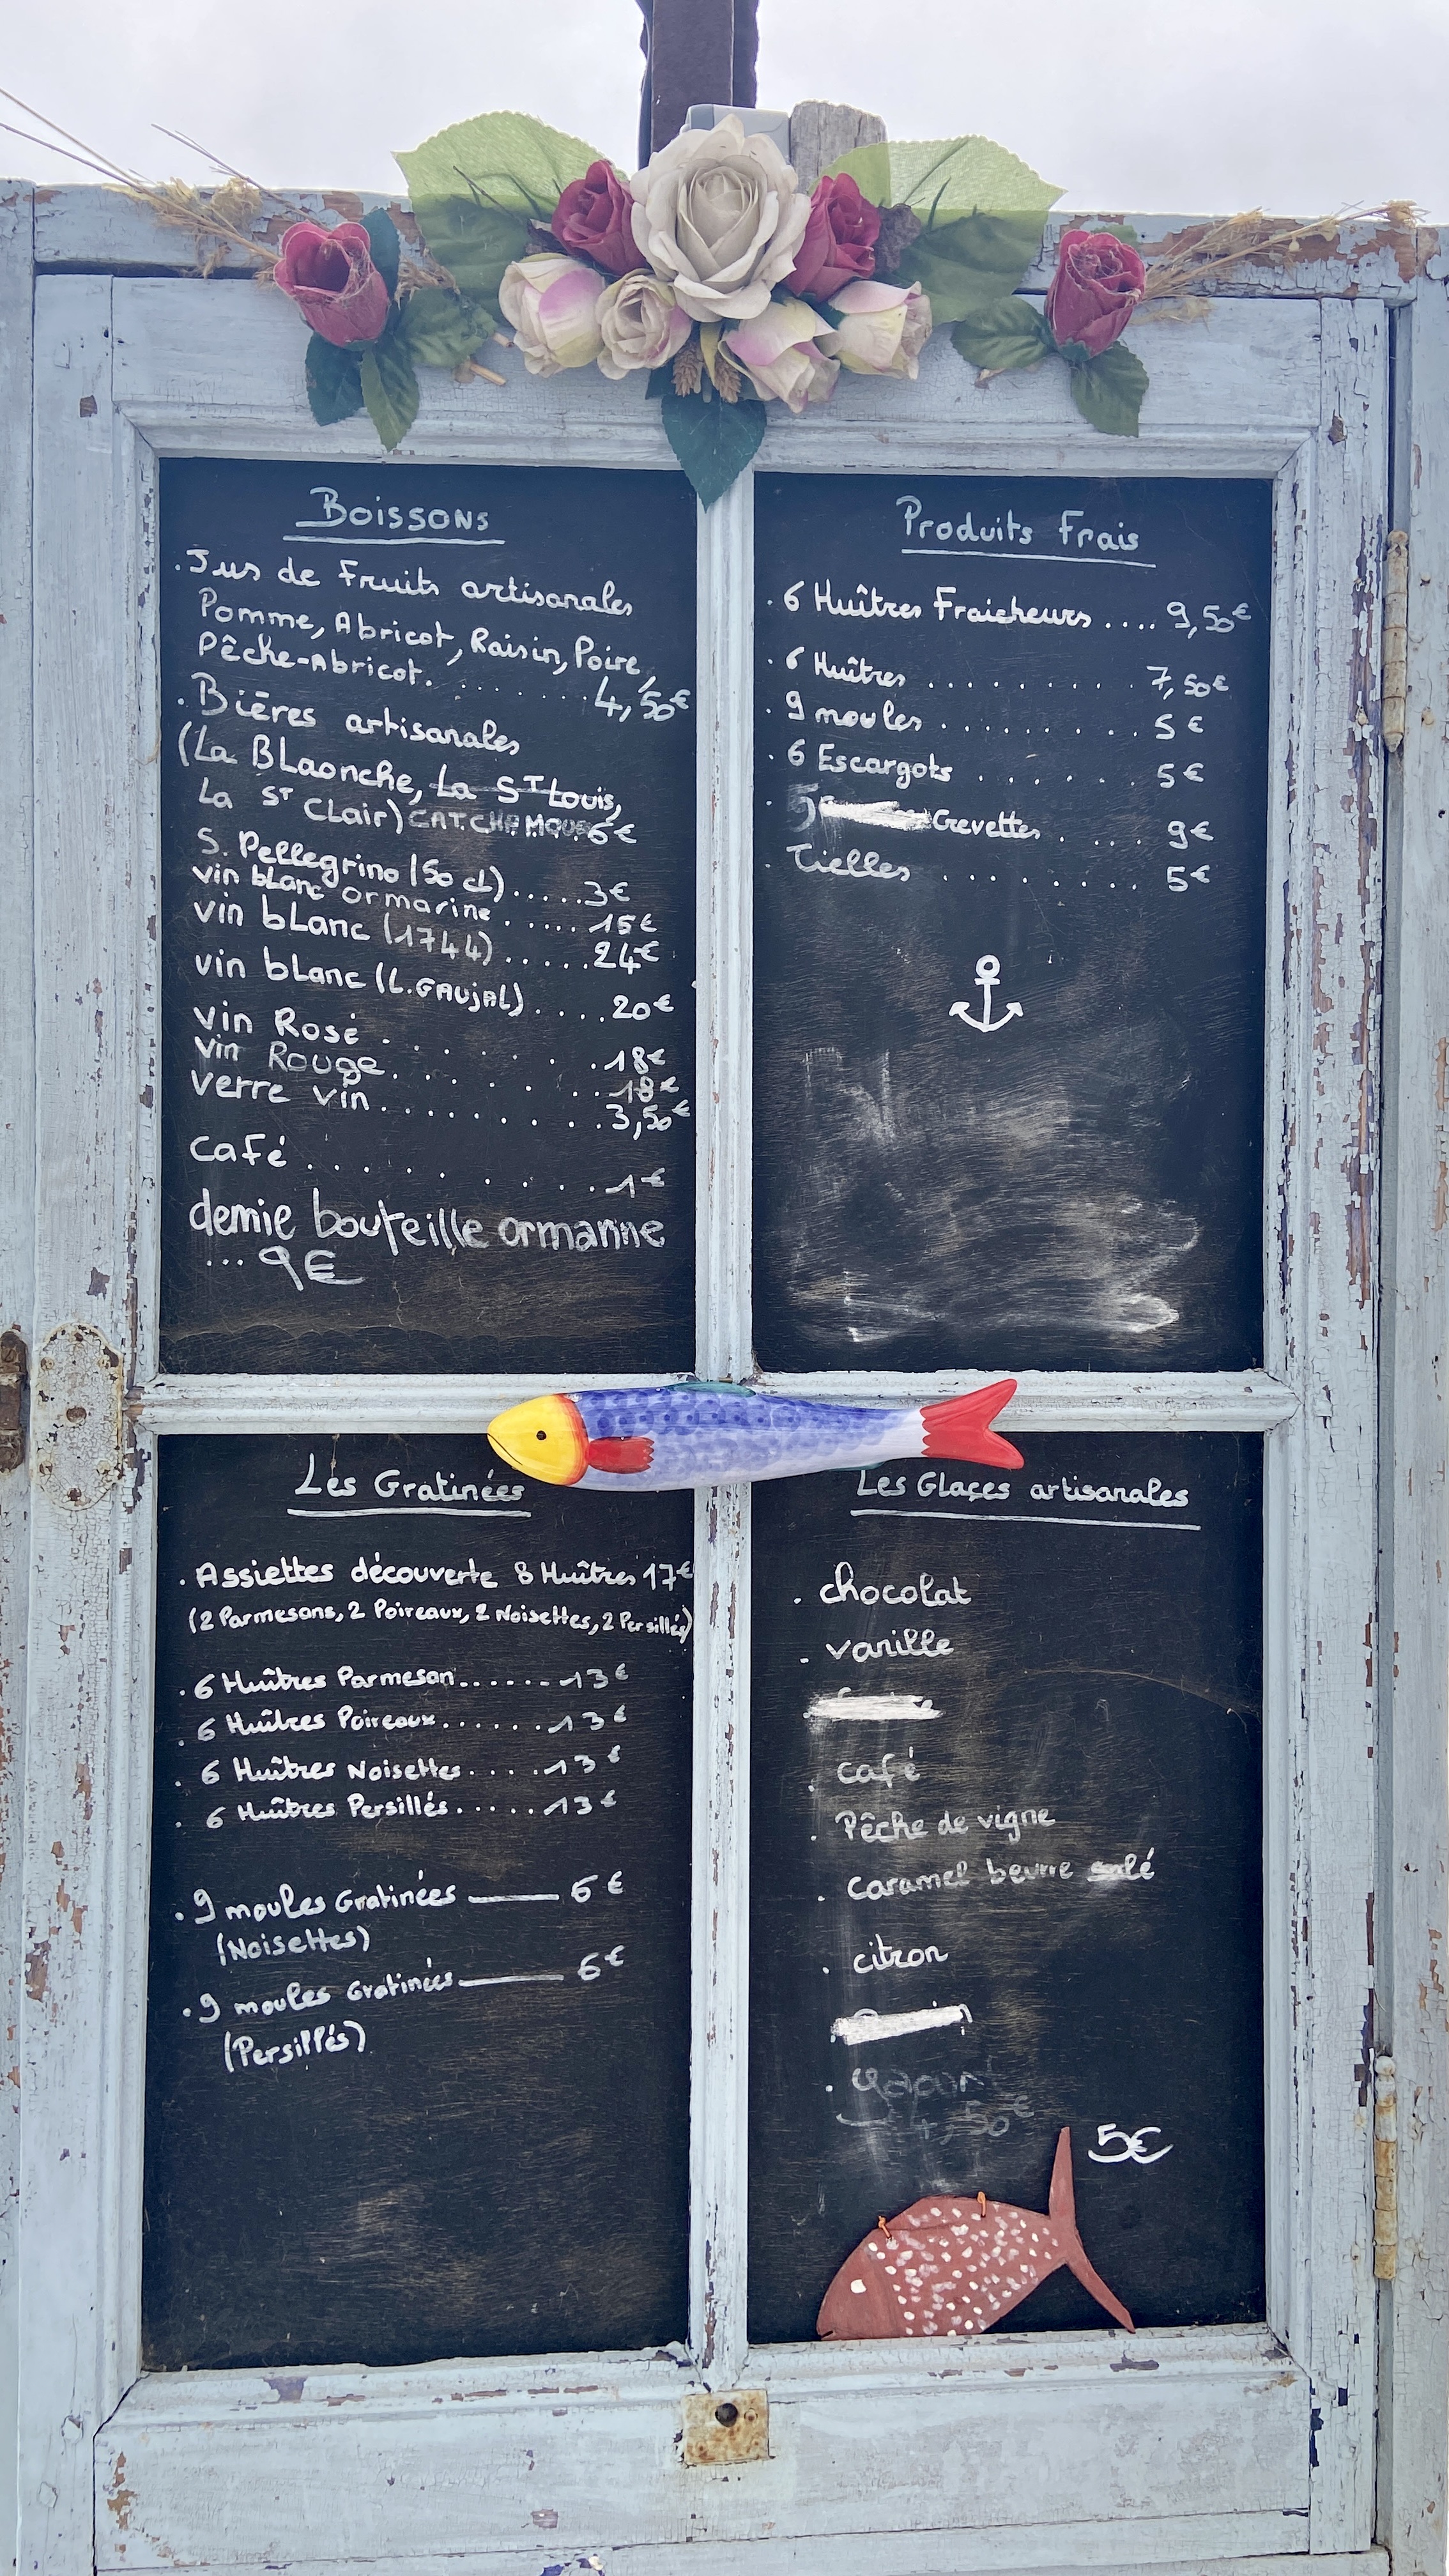 Boissons
. Jus de Fruits artisanales
Pomme, Abricot, Raisin, Poire,
Pêche-Abricot. ........ 4,50€
. Bières artisanales
(La BLaonche, La ST Louis,
La ST Clair) CAT.CHP MOUS 6€
S. Pellegrino (50 cl).....3€
vin blanc ormarine ..... 15€
vin bLanc (1744).....24€
vin bLanc (L.GAUjAL)....20€
vin Rosé . . . . . . .18€
vin Rouge. . . . . ...18€
verre vin. . . . . . . . .3,50€
café . . . . . . . . . .1€
demie bouteille ormarine
... 9€
Produits Frais
. 6 Huîtres Fraicheurs .... 9,50€
. 6 Huîtres . . . . . . . . . 7,50€
. 9 moules . . . . . . . . . 5€
. 6 Escargots . . . . . . 5€
. 5 Crevettes . . . . 9€
. Tielles . . . . . . . . 5€
Les Gratinées
. Assiettes découverte 8 Huîtres 17€
(2 Parmesans, 2 Poireaux, 2 Noisettes, 2 Persillés)
. 6 Huîtres Parmesan.......13€
. 6 Huîtres Poireaux.......13€
. 6 Huîtres Noisettes.....13€
. 6 Huîtres Persillés......13€
. 9 moules Gratinées — 6€
(Noisettes)
. 9 moules Gratinées — 6€
(Persillés)
Les Glaçes artisanales
. chocolat
. vanille
. café
. Pêche de vigne
. caramel beurre salé
. citron
5€